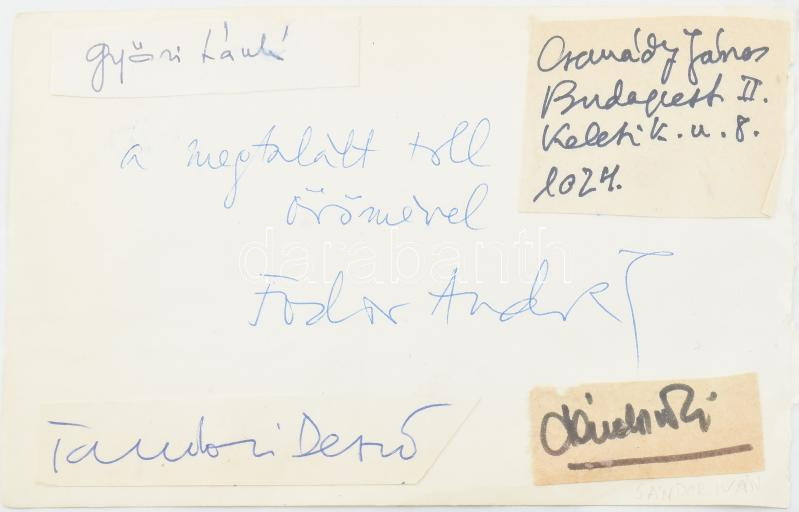 Győri László
Csanády János
Budapest II.
Keleti K. u. 8.
1024.
a megtalált toll
örömével
darabanth
Fodor András
Tandori Dezső
SÁNDOR IVÁN